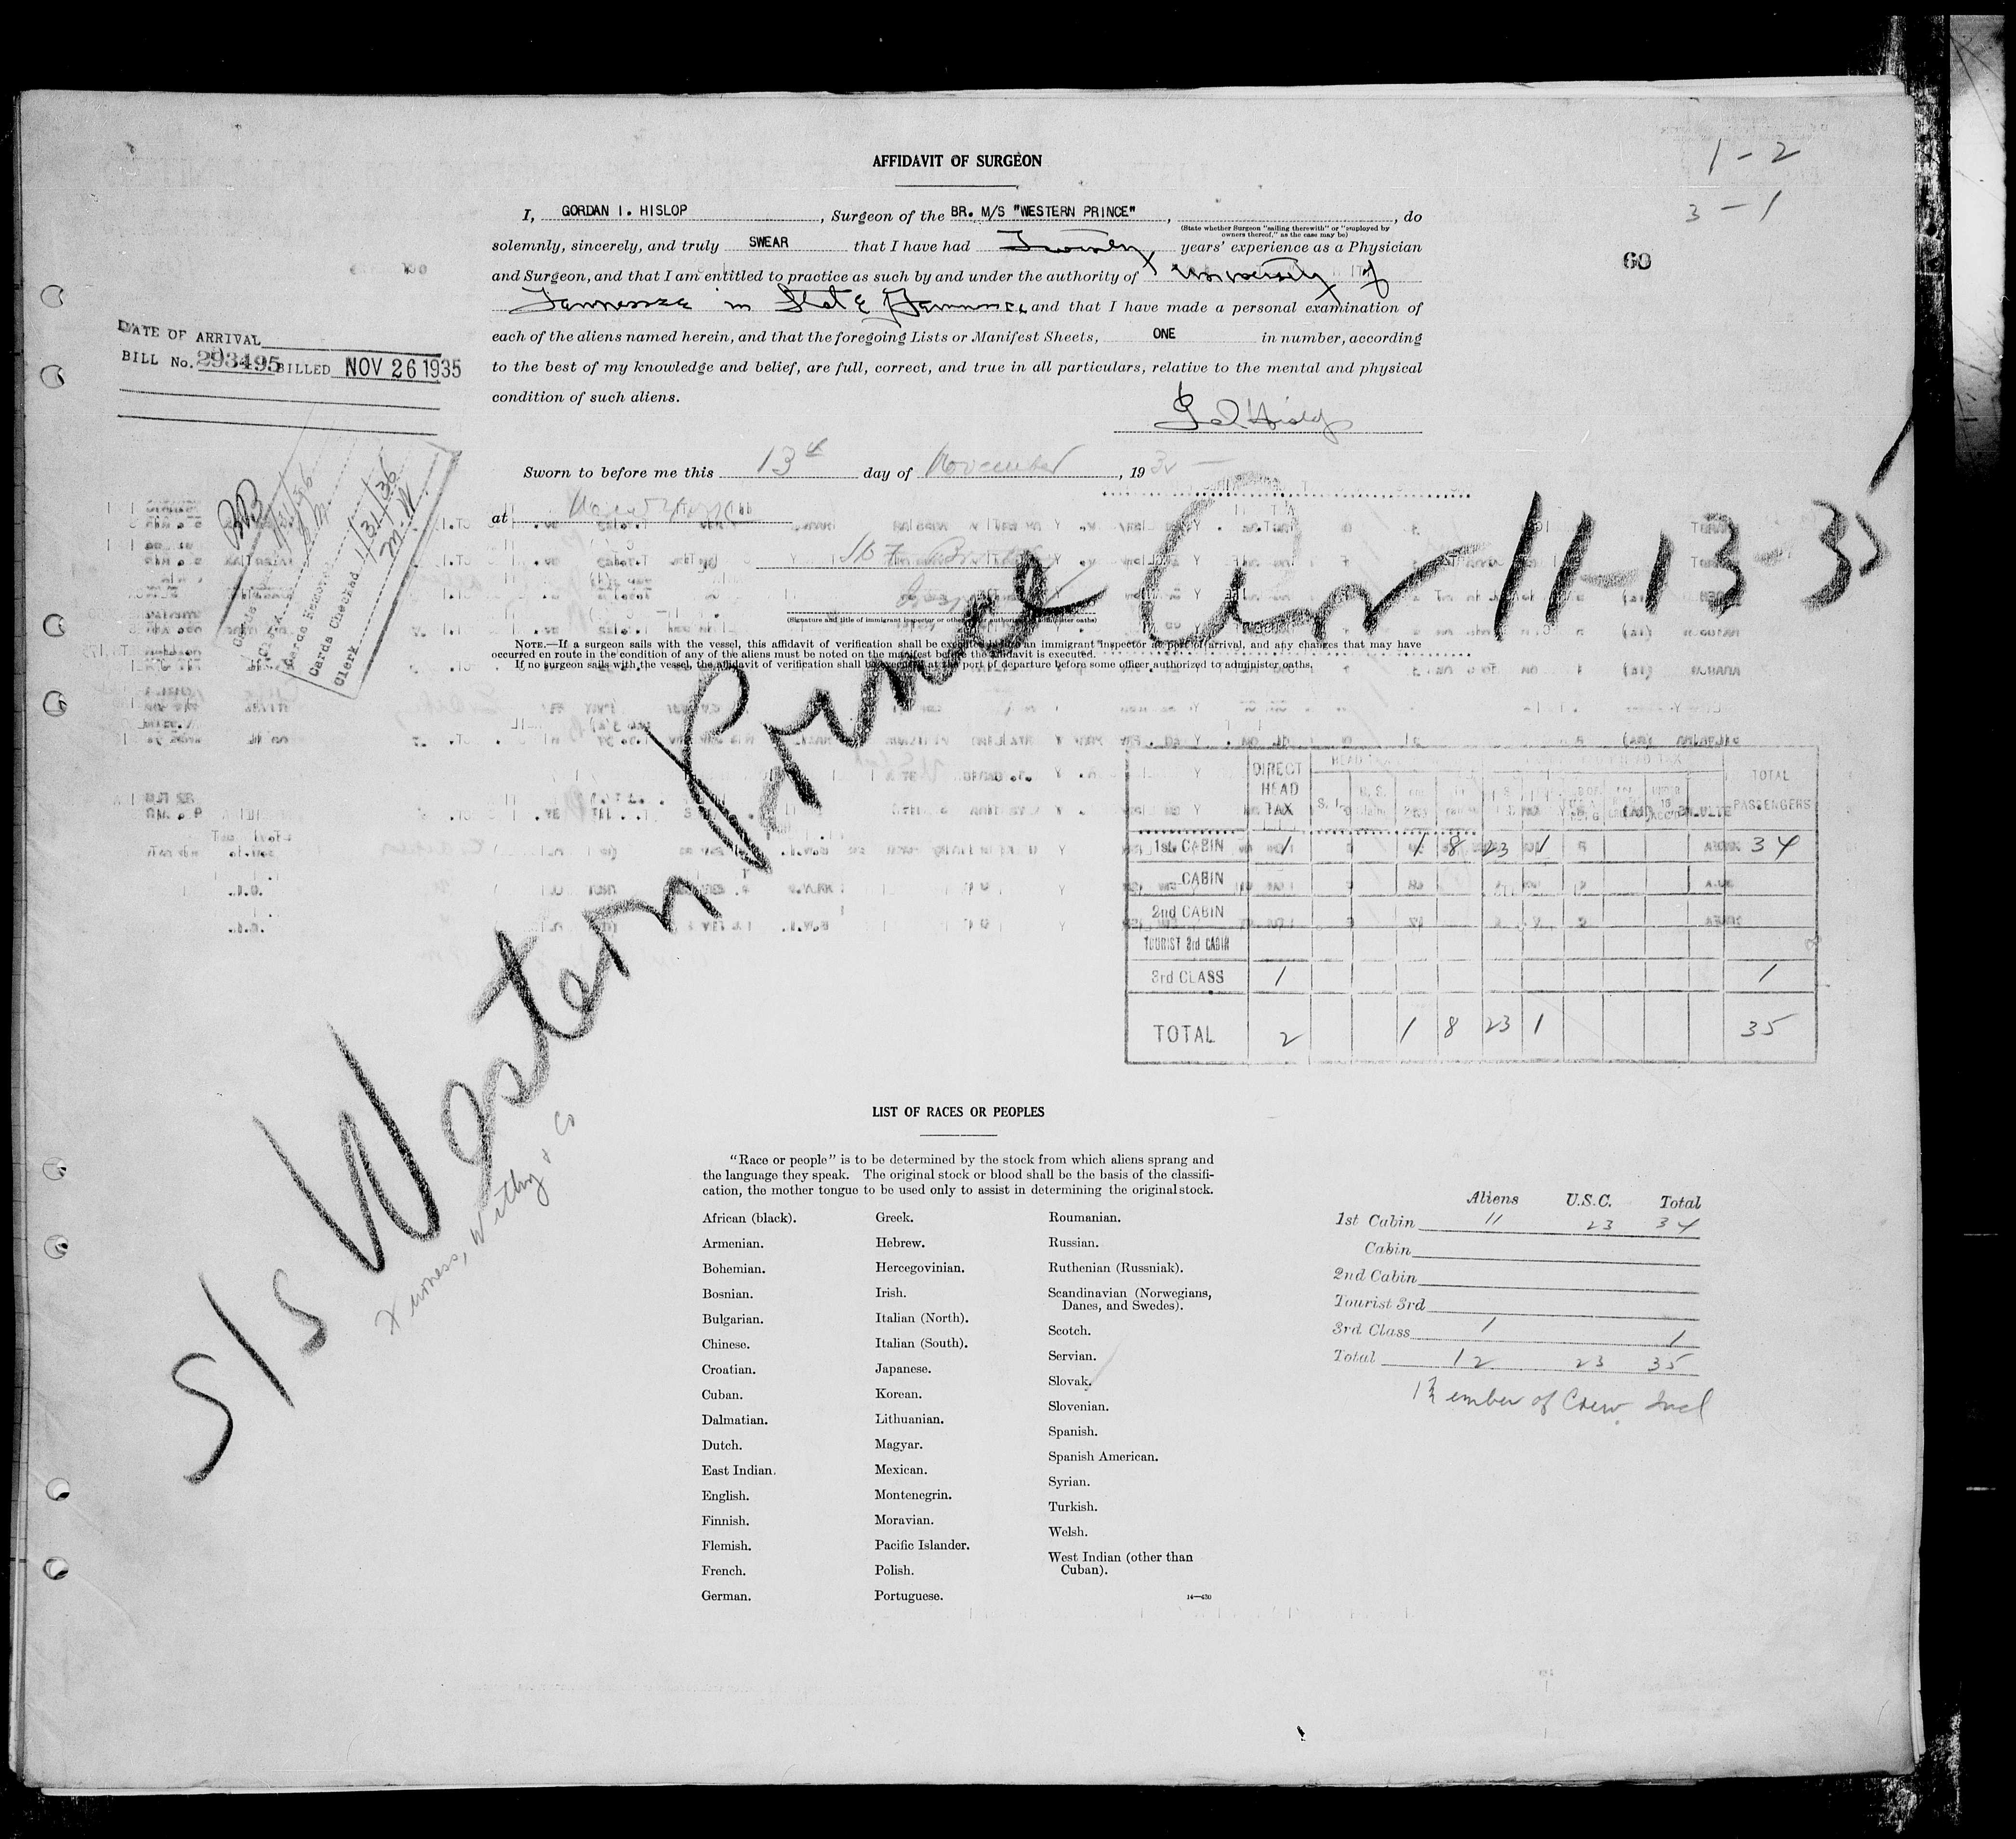 AFFIDAVIT OF SURGEON
1 - 2
3 - 1
60
I, GORDAN I. HISLOP, Surgeon of the BR. M/S "WESTERN PRINCE", , do
(State whether Surgeon "sailing therewith" or "employed by
owners thereof," as the case may be)
solemnly, sincerely, and truly SWEAR that I have had Twenty years' experience as a Physician
and Surgeon, and that I am entitled to practice as such by and under the authority of University of
Tennessee in State Tennessee and that I have made a personal examination of
each of the aliens named herein, and that the foregoing Lists or Manifest Sheets, ONE in number, according
to the best of my knowledge and belief, are full, correct, and true in all particulars, relative to the mental and physical
condition of such aliens.
DATE OF ARRIVAL
BILL No. 293495 BILLED NOV 26 1935
Sworn to before me this 13th day of November, 193
at
(Signature and title of immigrant inspector or other officer authorized to administer oaths)
NOTE.—If a surgeon sails with the vessel, this affidavit of verification shall be executed before an immigrant inspector at port of arrival, and any changes that may have
occurred en route in the condition of any of the aliens must be noted on the manifest before the affidavit is executed.
If no surgeon sails with the vessel, the affidavit of verification shall be executed at the port of departure before some officer authorized to administer oaths.
Cards Removed
Cards Checked 1/31/36
Clerk
S/S Western Prince Arr 11-13-35
Furness, Withy & Co
DIRECT HEAD TAX
TOTAL PASSENGERS
1st CABIN 1 1 8 23 1 34
CABIN
2nd CABIN
TOURIST 3rd CABIN
3rd CLASS 1 1
TOTAL 2 1 8 23 1 35
LIST OF RACES OR PEOPLES
"Race or people" is to be determined by the stock from which aliens sprang and
the language they speak. The original stock or blood shall be the basis of the classifi-
cation, the mother tongue to be used only to assist in determining the original stock.
African (black).
Armenian.
Bohemian.
Bosnian.
Bulgarian.
Chinese.
Croatian.
Cuban.
Dalmatian.
Dutch.
East Indian.
English.
Finnish.
Flemish.
French.
German.
Greek.
Hebrew.
Hercegovinian.
Irish.
Italian (North).
Italian (South).
Japanese.
Korean.
Lithuanian.
Magyar.
Mexican.
Montenegrin.
Moravian.
Pacific Islander.
Polish.
Portuguese.
Roumanian.
Russian.
Ruthenian (Russniak).
Scandinavian (Norwegians,
Danes, and Swedes).
Scotch.
Servian.
Slovak.
Slovenian.
Spanish.
Spanish American.
Syrian.
Turkish.
Welsh.
West Indian (other than
Cuban).
14—430
Aliens U.S.C. Total
1st Cabin 11 23 34
Cabin
2nd Cabin
Tourist 3rd
3rd Class 1 1
Total 12 23 35
1 Member of Crew Incl